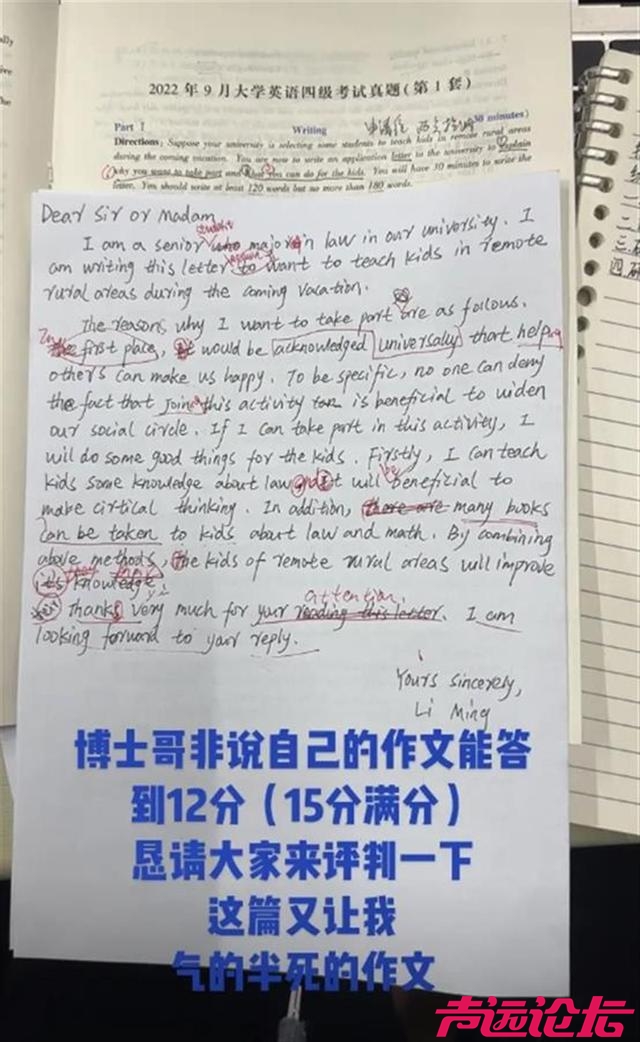 2022年9月大学英语四级考试真题(第1套)
Part I Writing 30 minutes)
Directions: Suppose your university is selecting some students to teach kids in remote rural areas
during the coming vacation. You are now to write an application letter to the university to explain
why you want to take part and what you can do for the kids. You will have 30 minutes to write the
letter. You should write at least 120 words but no more than 180 words.
Dear Sir or Madam,
student
I am a senior who major in law in our university. I
am writing this letter to want to teach kids in remote
rural areas during the coming vacation.
The reasons why I want to take part are as follows.
In
the first place, it would be acknowledged universally that helping
others can make us happy. To be specific, no one can deny
the fact that joining this activity is beneficial to widen
our social circle. If I can take part in this activity, I
will do some good things for the kids. Firstly, I can teach
be
kids some knowledge about law and it will beneficial to
make cirtical thinking. In addition, there are many books
can be taken to kids about law and math. By combining
above methods, the kids of remote rural areas will improve
its knowledge.
attention.
Thanks very much for your reading this letter. I am
looking forward to your reply.
Yours sincerely,
Li Ming
博士哥非说自己的作文能答
到12分(15分满分)
恳请大家来评判一下
这篇又让我
气的半死的作文
声远论坛